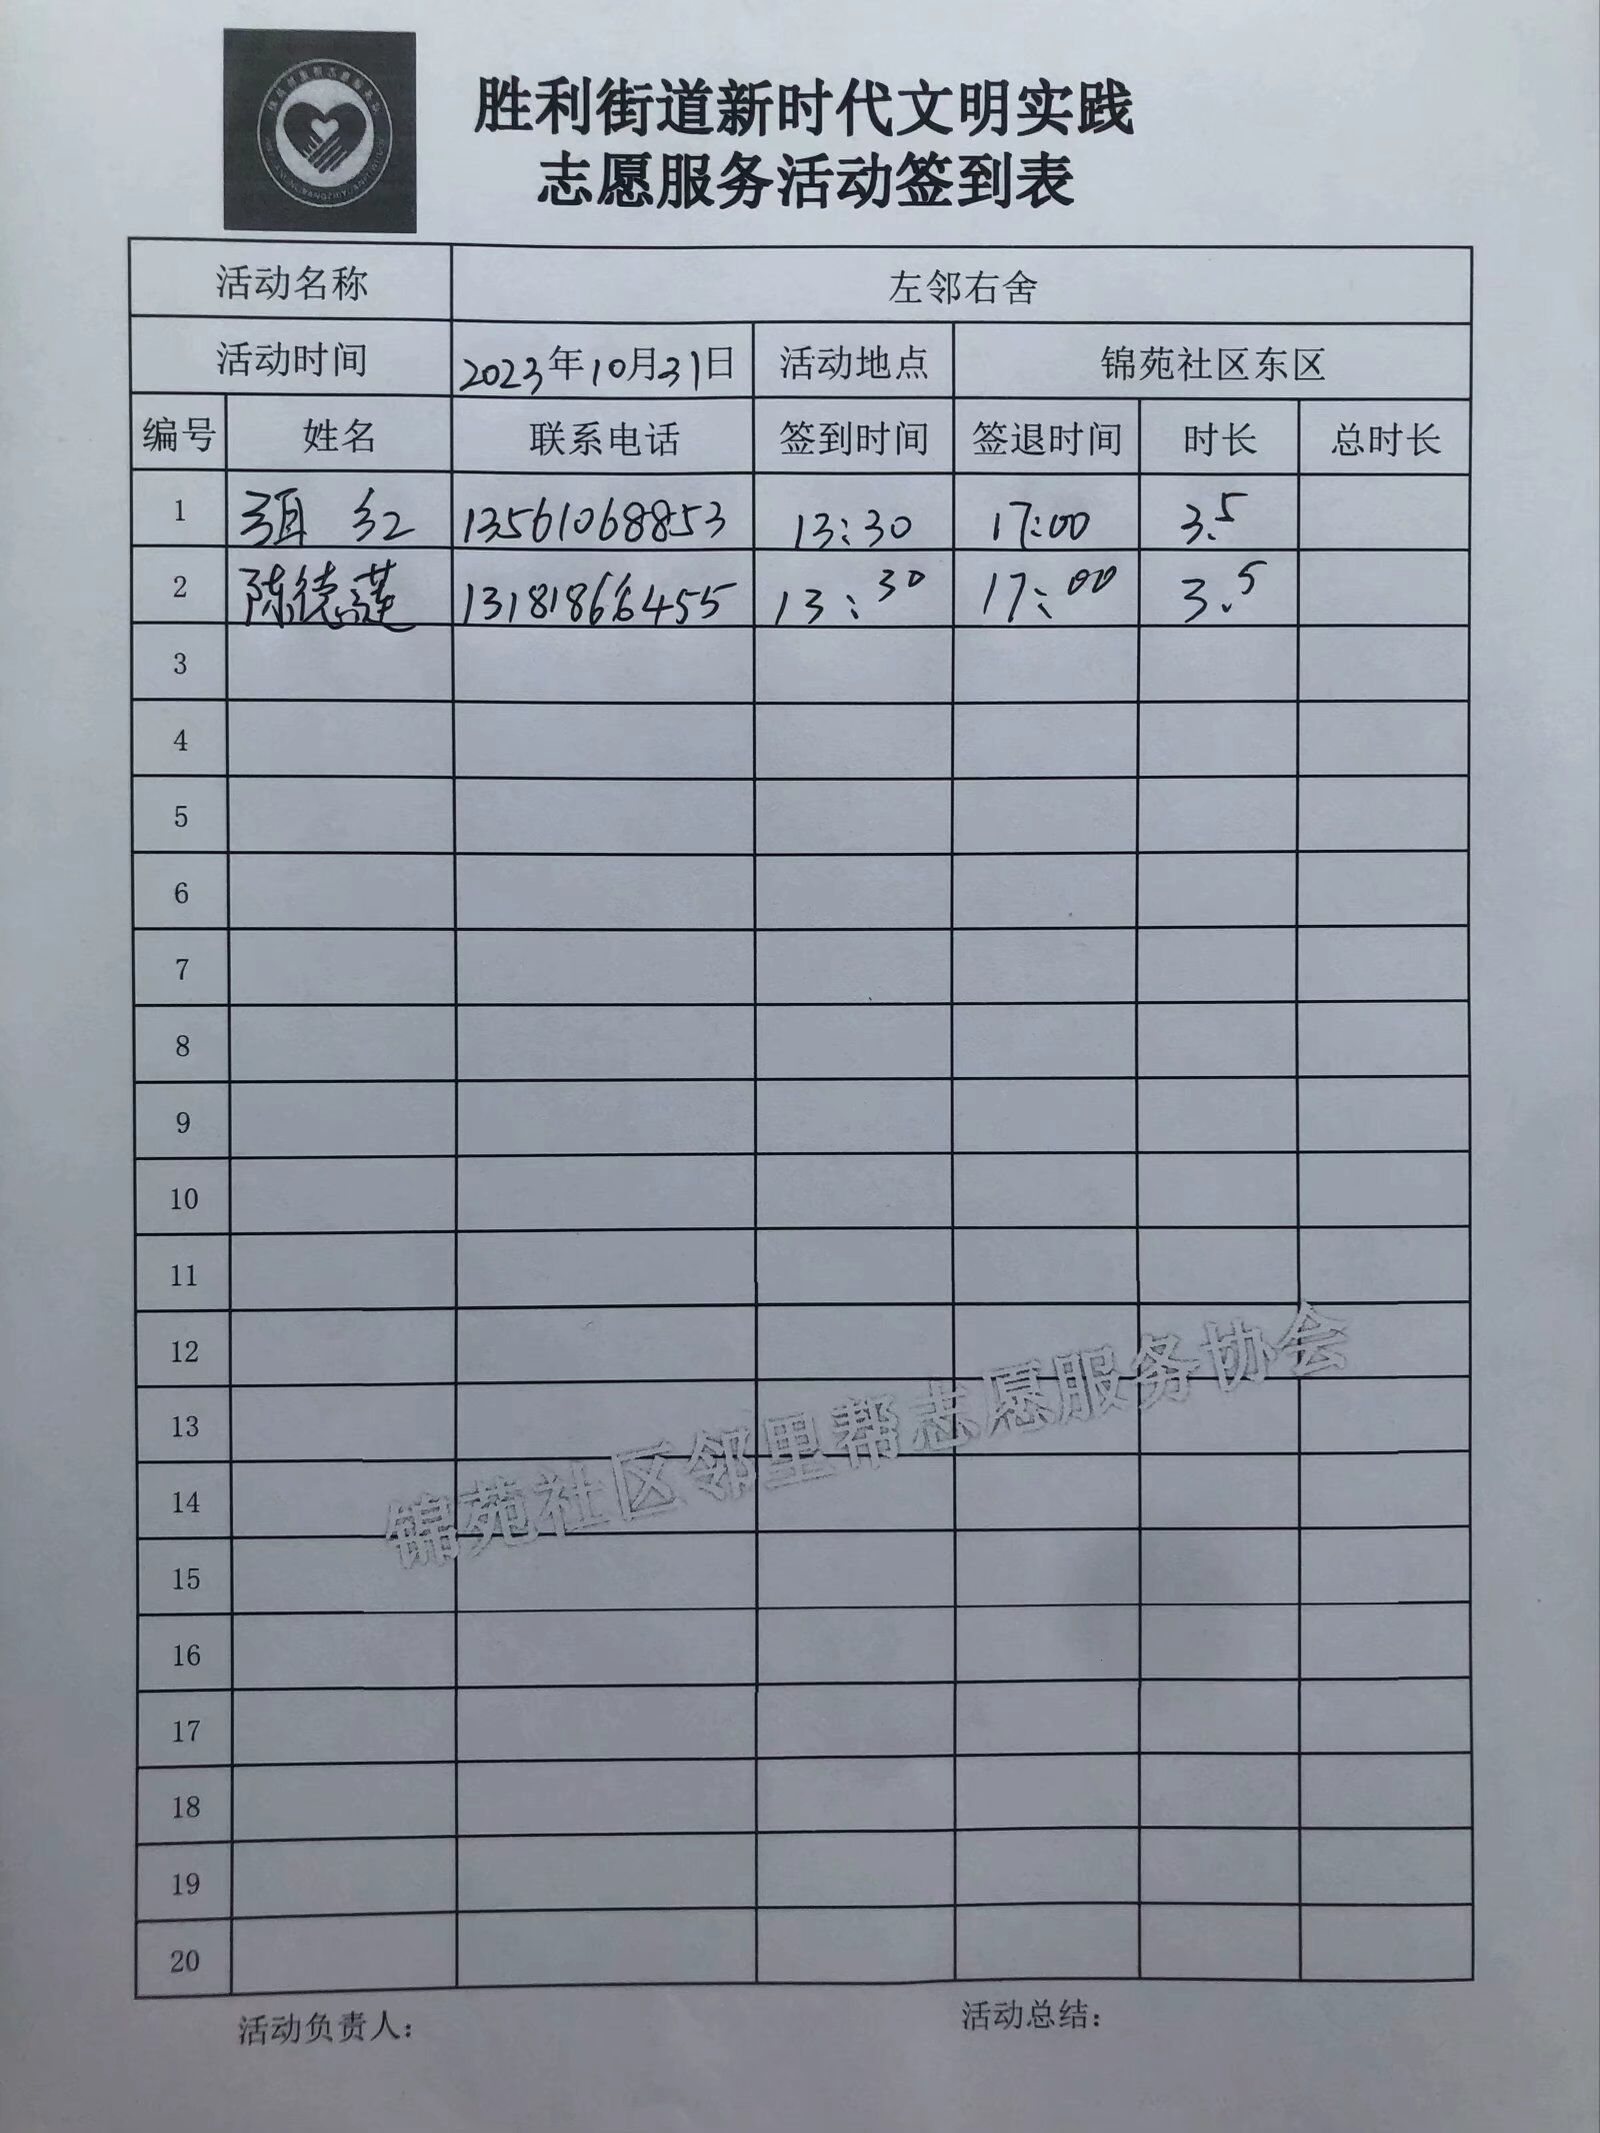 胜利街道新时代文明实践
志愿服务活动签到表
活动名称 左邻右舍
活动时间 2023年10月31日 活动地点 锦苑社区东区
编号 姓名 联系电话 签到时间 签退时间 时长 总时长
1 红 13561068853 13:30 17:00 3.5
2 陈德莲 13181866455 13:30 17:00 3.5
3
4
5
6
7
8
9
10
11
12
13
14
15
16
17
18
19
20
锦苑社区邻里帮志愿服务协会
活动负责人: 活动总结: